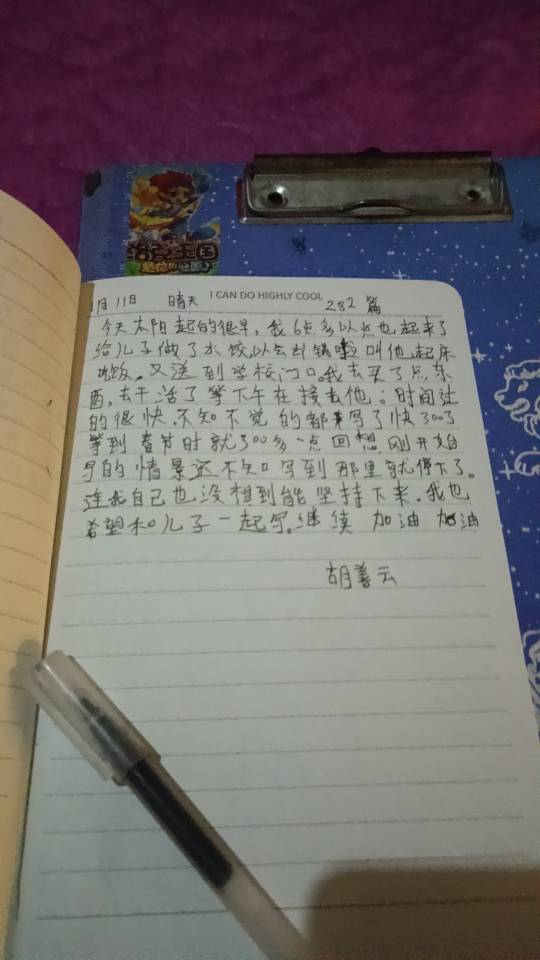 洛克王国
月11日 晴天 I CAN DO HIGHLY COOL 282 篇
今天太阳起的很早,我6点多以点也起来了
给儿子做了水饺以会出锅啦叫他起床
吃饭。又送到学校门口。我去买了点东
西,去干活了等下午在接去他。时间过
的很快.不知不觉的都来写了快300了
等到春节时就300多一点回想.刚开始
写的情景还不知写到那里就停下了。
连我自己也没想到能坚持下来.我也
希望和儿子一起写.继续 加油 加油
胡善云